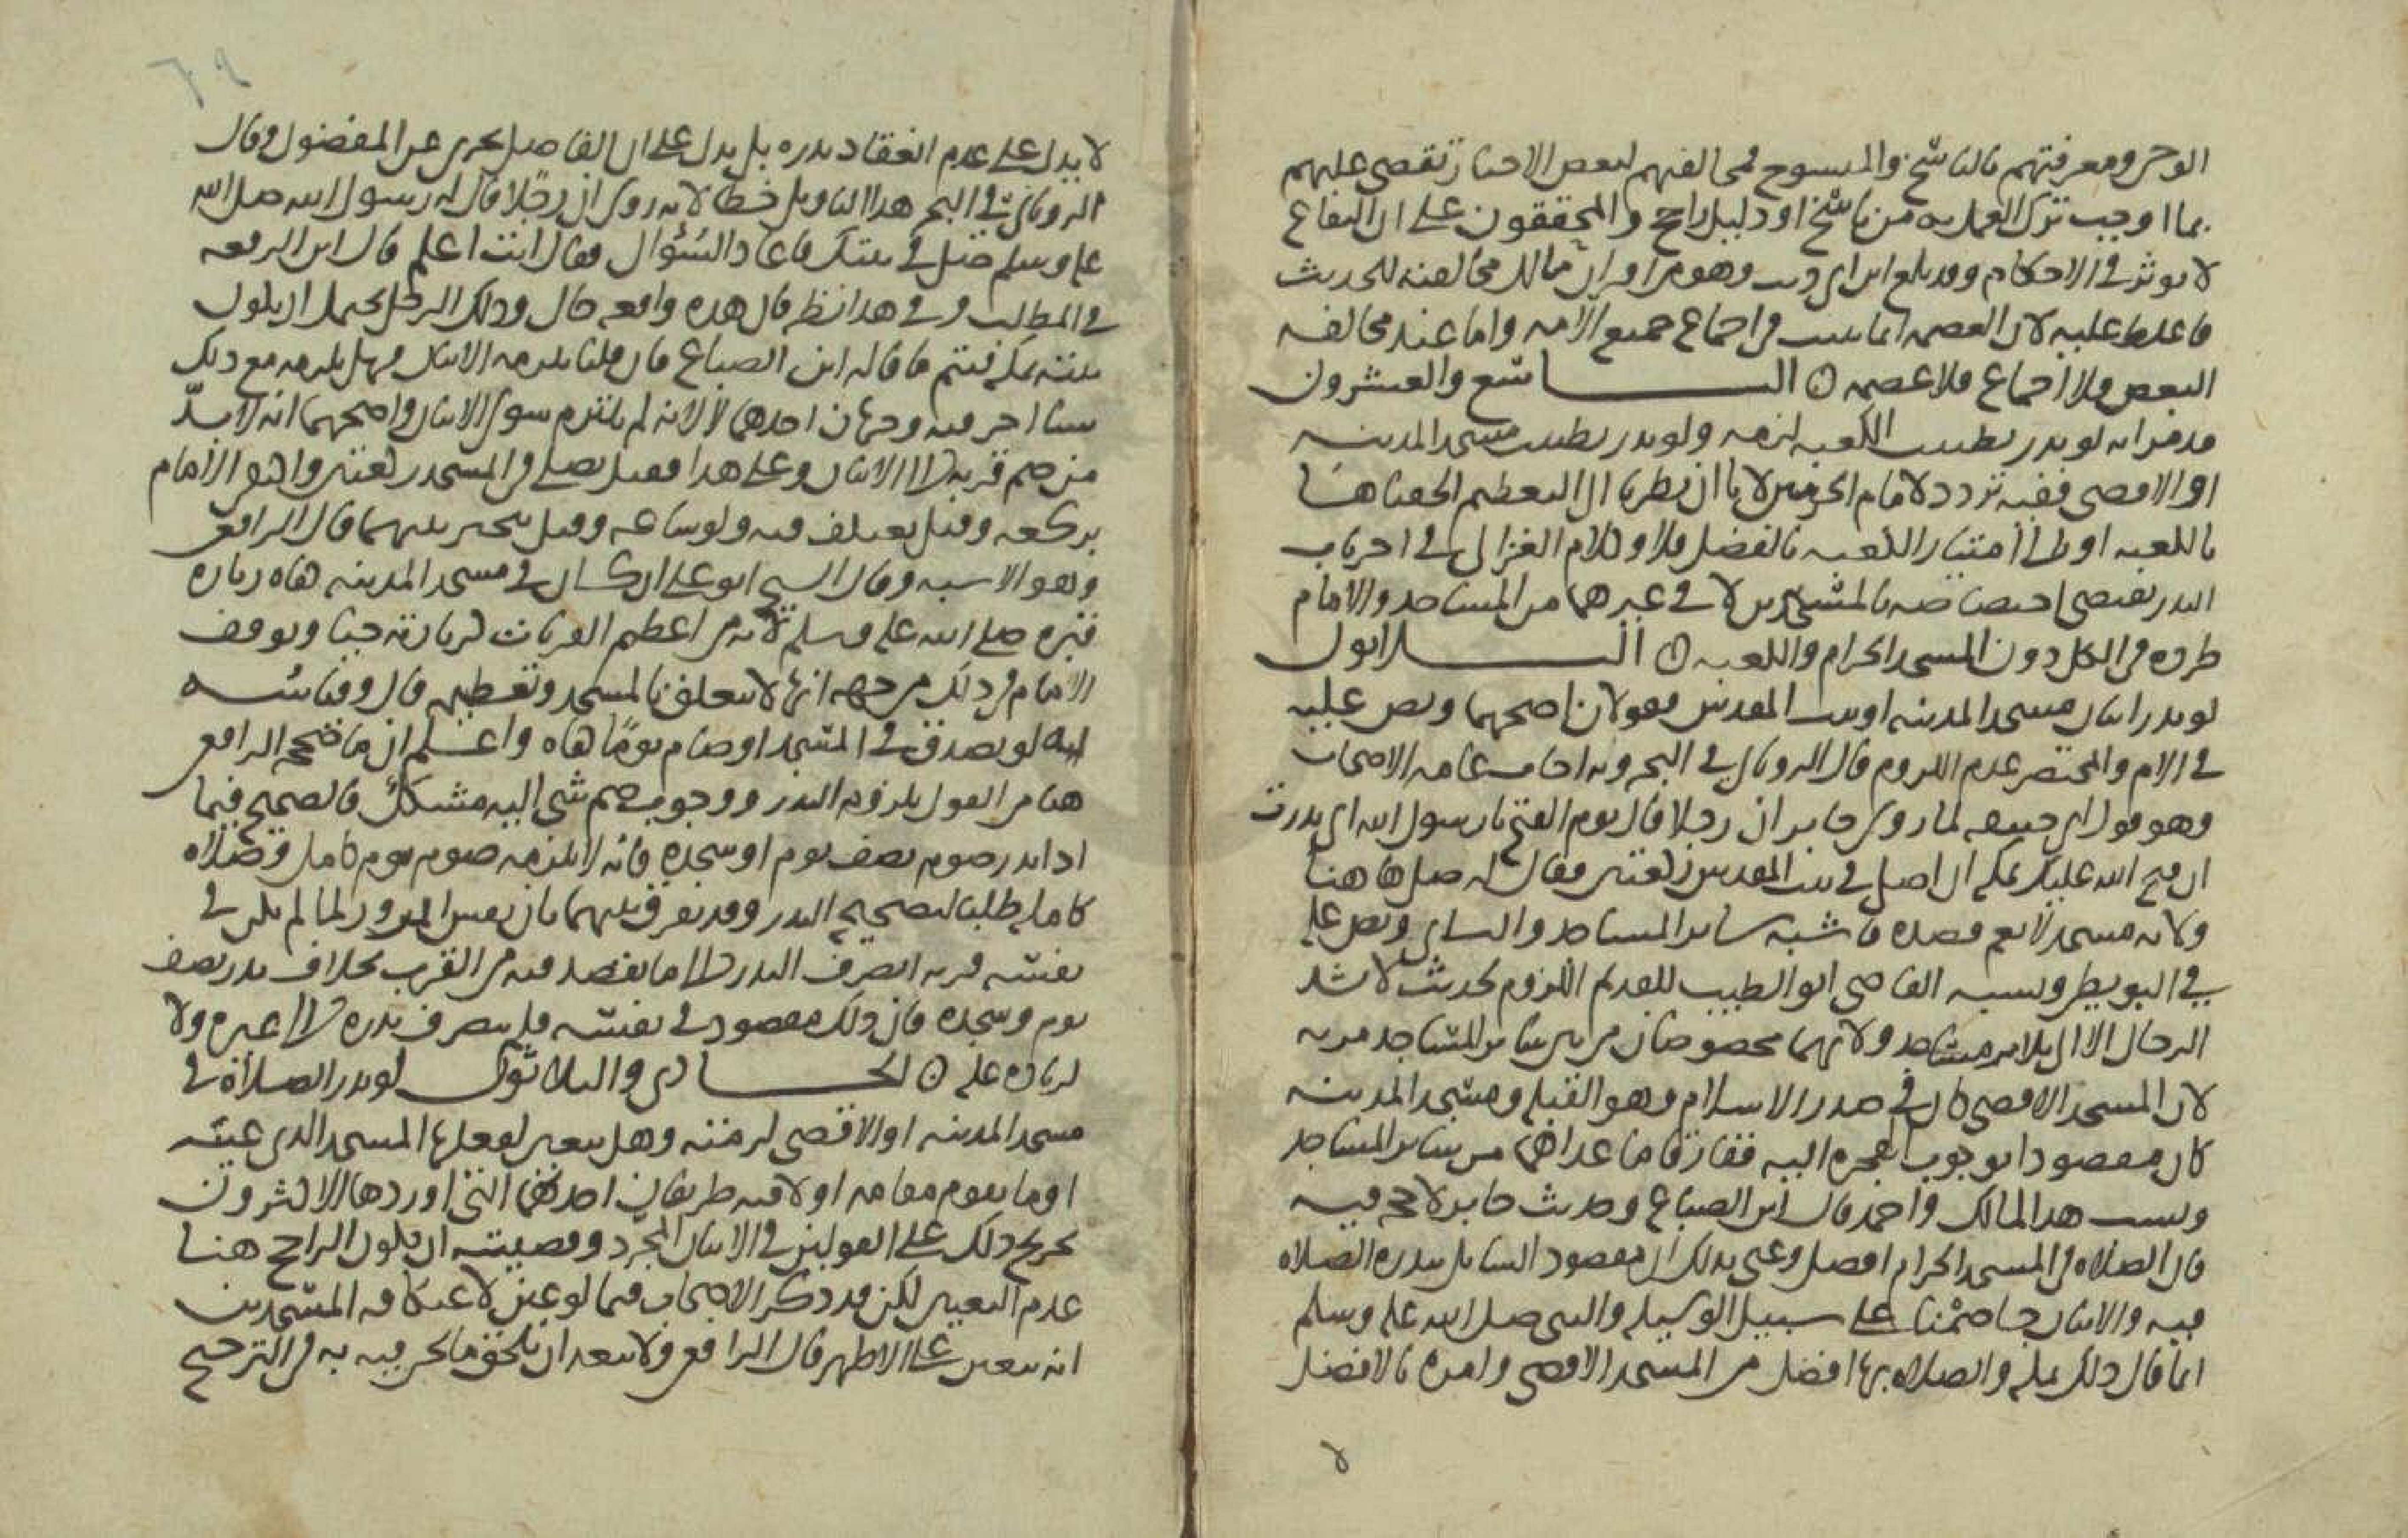 الوحي ومعرفتهم بالناسخ والمنسوخ فمخالفتهم لبعض الاخبار تقضي عليهم
بما اوجب ترك العمل به من ناسخ او دليل راجح والمحققون على ان البقاع
لا توثر في الاحكام وقد بلغ ابن ابي ذيب وهو من اقران مالك مخالفته للحديث
فاغلظ عليه لان العصمه انما تثبت في اجماع جميع الامه واما عند مخالفه
البعض فلا اجماع فلا عصمه ۞ التاسع والعشرون
قد مر انه لو نذر تطييب الكعبه لزمه ولو نذر تطييب مسجد المدينه
او الاقصى ففيه تردد لامام الحرمين لانا ان نظرنا الى التعظيم الحقناهما
بالكعبه او الى امتياز الكعبه بالفضل فلا وكلام الغزالي في اخر باب
النذر يقتضي اختصاصه بالمسجدين لا في غيرهما من المساجد والامام
طرده في الكل دون المسجد الحرام والكعبه ۞ الثلاثون
لو نذر اتيان مسجد المدينه او بيت المقدس فقولان اصحهما ونص عليه
في الام والمختصر عدم اللزوم قال الروياني في البحر وبه اجاب عامه الاصحاب
وهو قول ابي حنيفه لما روى جابر ان رجلا قال يوم الفتح يا رسول الله اني نذرت
ان فتح الله عليك مكه ان اصلي في بيت المقدس ركعتين فقال له صل ها هنا
ولانه مسجد لا يجب قصده فاشبه ساير المساجد والثاني ونص عليه
في البويطي ونسبه القاضي ابو الطيب للقديم اللزوم لحديث لا تشد
الرحال الا الى ثلاثه مساجد ولانهما مخصوصان من بين ساير المساجد بمزيه
لان المسجد الاقصى كان في صدر الاسلام وهو القبله ومسجد المدينه
كان مقصودا بوجوب الهجره اليه ففارقا ما عداهما من ساير المساجد
ونسب هذا لمالك واحمد قال ابن الصباغ وحديث جابر لا حجه فيه
فان الصلاه في المسجد الحرام افضل وعنى بذلك ان مقصود السايل بنذره الصلاه
فيه والاتيان جا ضمنا على سبيل الوسيله والنبي صلى الله عليه وسلم
انما قال ذلك بمكه والصلاه بها افضل من المسجد الاقصى وامره بالافضل
لا
٦٩
لا يدل على عدم انعقاد نذره بل يدل على ان الفاضل يجزي عن المفضول وقال
الروياني في البحر هذا التاويل خطا لانه روي ان رجلا قال له رسول الله صلى الله
عليه وسلم صل في بيتك فاعاد السؤال فقال انت اعلم قال ابن الرفعه
في المطلب وفي هذا نظر فان هذه واقعه حال وذلك الرجل يحتمل ان يكون
بيته بمكه فيتم ما قاله ابن الصباغ فان قلنا يلزمه الاتيان فهل يلزمه مع ذلك
شيئا اخر فيه وجهان احدهما لا لانه لم يلتزم سوى الاتيان واصحهما انه لا بد
من ضم قربه الى الاتيان وعلى هذا فقيل يصلي في المسجد ركعتين واكتفى الامام
بركعه وقيل يعتكف فيه ولو ساعه وقيل يتخير بينهما قال الرافعي
وهو الاشبه وقال الشيخ ابو علي ان كان في مسجد المدينه كفاه زياره
قبره صلى الله عليه وسلم لانه من اعظم القربات لزيارته حيا وتوقف
الامام في ذلك من جهه انها لا تتعلق بالمسجد وتعظيمه قال وقياسه
انه لو تصدق في المسجد او صام يوما كفاه واعلم ان ما صححه الرافعي
هنا من القول بلزوم النذر ووجوب ضم شي اليه مشكل فالصحيح فيما
اذا نذر صوم نصف يوم او سجده فانه لا يلزمه صوم يوم كامل وصلاه
كامله طلبا لتصحيح النذر وقد يفرق بينهما بان نفس المنذور لما لم يكن في
نفسه قربه انصرف النذر الى ما يقصد فيه من القرب بخلاف نذر نصف
يوم وسجده فان ذلك مقصود في نفسه فلم ينصرف نذره الى غيره ولا
لزياده عليه ۞ الحادي والثلاثون لو نذر الصلاة في
مسجد المدينه او الاقصى لزمته وهل يتعين لفعلها المسجد الذي عينه
او ما يقوم مقامه او لا فيه طريقان احدهما التي اوردها الاكثرون
تخريج ذلك على القولين في الاتيان المجرد وقضيته ان يكون الراجح هنا
عدم التعيين لكن قد ذكر الاصحاب فيما لو عين لاعتكافه المسجدين
انه يتعين على الاظهر قال الرافعي ولا يبعد ان يلحق ما نحن فيه به في الترجيح